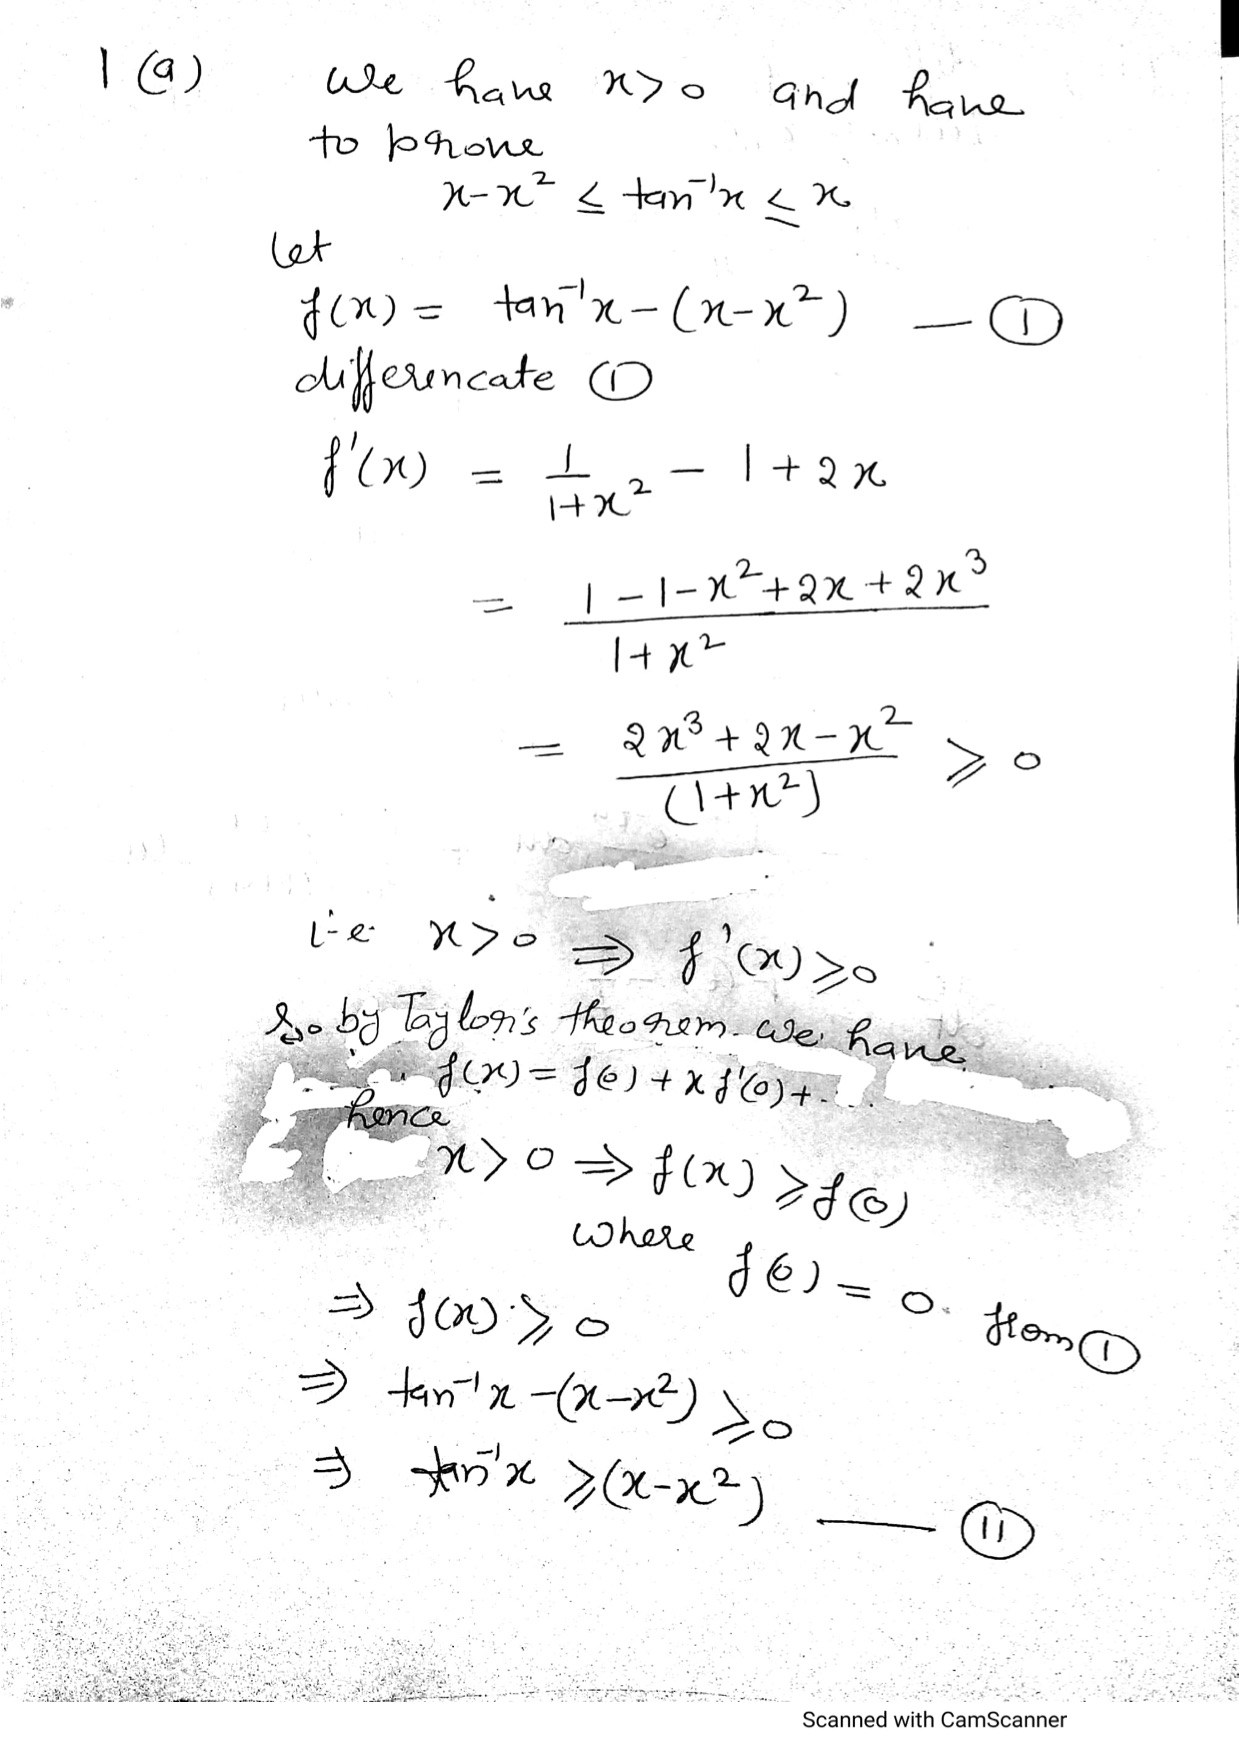 1 (a) We have x>0 and have
to prove
x-x² ≤ tan⁻¹x ≤ x
Let
f(x) = tan⁻¹x - (x-x²) — ①
differencate ①
f'(x) = 1/(1+x²) - 1 + 2x
= (1-1-x²+2x+2x³)/(1+x²)
= (2x³+2x-x²)/(1+x²) ≥ 0
i.e. x>0 ⇒ f'(x) ≥ 0
So by Taylor's theorem we have
f(x) = f(0) + x f'(0) + ....
hence
x>0 ⇒ f(x) ≥ f(0)
where f(0) = 0. from ①
⇒ f(x) ≥ 0
⇒ tan⁻¹x - (x-x²) ≥ 0
⇒ tan⁻¹x ≥ (x-x²) — ⑪
Scanned with CamScanner